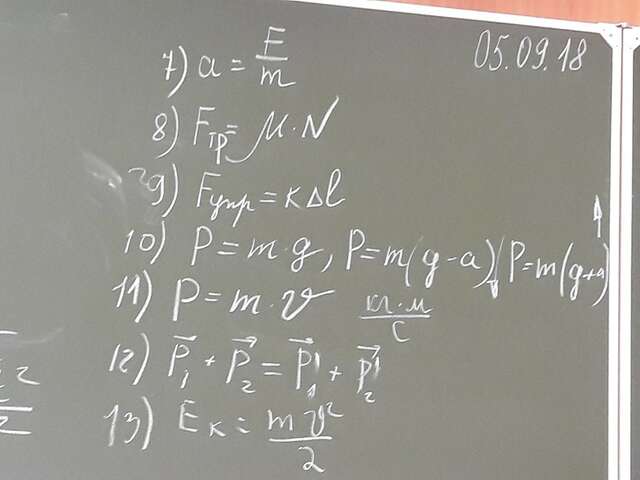 05.09.18
7) a = F/m
8) Fтр = μ·N
9) Fупр = кΔl
10) P = m·g, P = m(g-a)↓ P = m(g+a)↑
11) P = m·v кг·м/с
12) P⃗₁ + P⃗₂ = P⃗₁' + P⃗₂'
13) Eк = mv²/2